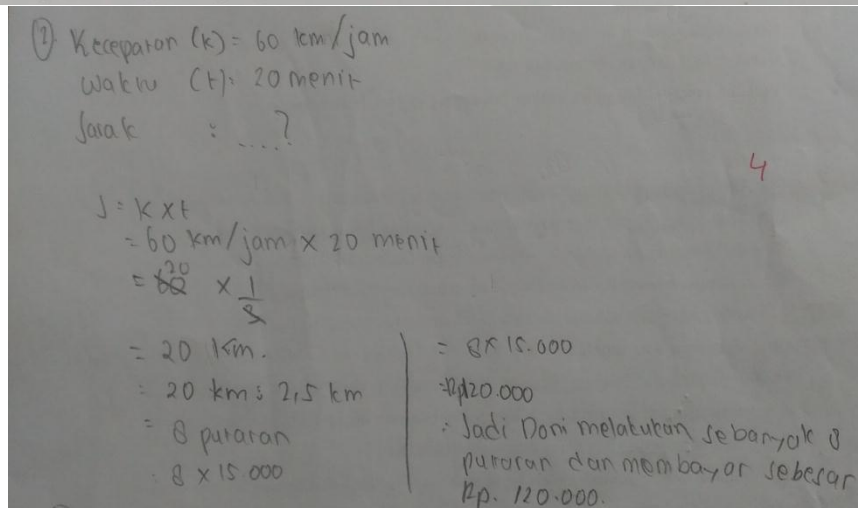 ② Keceparan (k) = 60 km/jam
Waktu (t): 20 menit
Jarak : ....?
4
J = k x t
= 60 km/jam x 20 menit
= 60 20 x 1/3
= 20 Km.
: 20 km : 2,5 km
= 8 putaran
: 8 x 15.000
= 8 x 15.000
= Rp120.000
: Jadi Doni melakukan sebanyak 8
putaran dan membayar sebesar
Rp. 120.000.